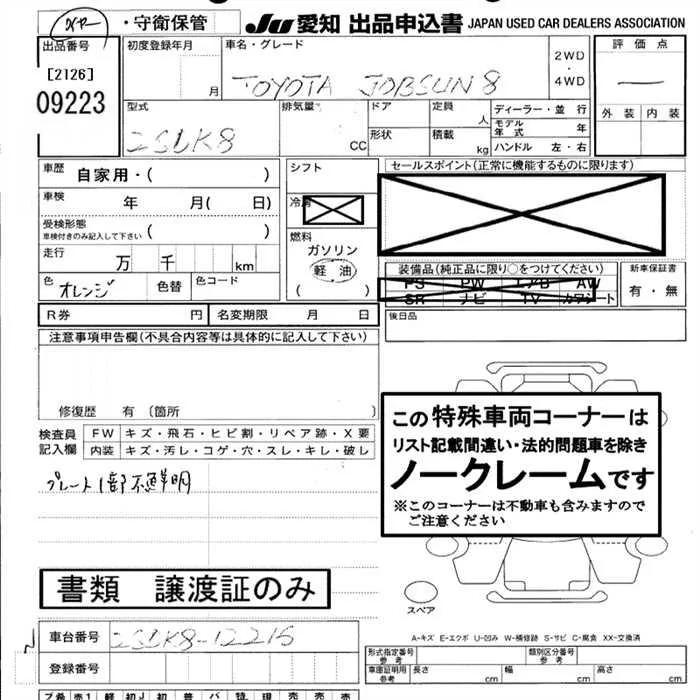 ・守衛保管
JU 愛知 出品申込書 JAPAN USED CAR DEALERS ASSOCIATION
出品番号
[2126]
09223
初度登録年月
月
車名・グレード
TOYOTA JOBSUN8
2WD
・
4WD
評価点
外装 内装
型式
2SDK8
排気量
CC
ドア
形状
定員
人
積載
kg
ディーラー・並行
モデル年式 年
ハンドル 左・右
車歴 自家用・( )
車検 年 月( 日)
受検形態
車検付きのみ記入して下さい ( )
走行 万 千 km
色 オレンジ 色替 色コード
R券 円 名変期限 月 日
シフト
冷房
燃料
ガソリン
軽油
( )
セールスポイント(正常に機能するものに限ります)
装備品(純正品に限り○をつけてください)
PS PW エアB AW
SR ナビ TV カワシート
新車保証書
有・無
後日品
注意事項申告欄(不具合内容等は具体的に記入して下さい)
修復歴 有 (箇所 )
検査員記入欄
FW キズ・飛石・ヒビ割・リペア跡・X要
内装 キズ・汚レ・コゲ・穴・スレ・キレ・破レ
プレート1部不鮮明
この特殊車両コーナーは
リスト記載間違い・法的問題車を除き
ノークレームです
※このコーナーは不動車も含みますので
ご注意ください
書類 譲渡証のみ
スペア
A-キズ E-エクボ U-凹み W-補修跡 S-サビ C-腐食 XX-交換済
車台番号 2SDK8-12215
登録番号
形式指定番号 参考
類別区分番号 参考
車庫証明用 参考 長さ cm 幅 cm 高さ cm